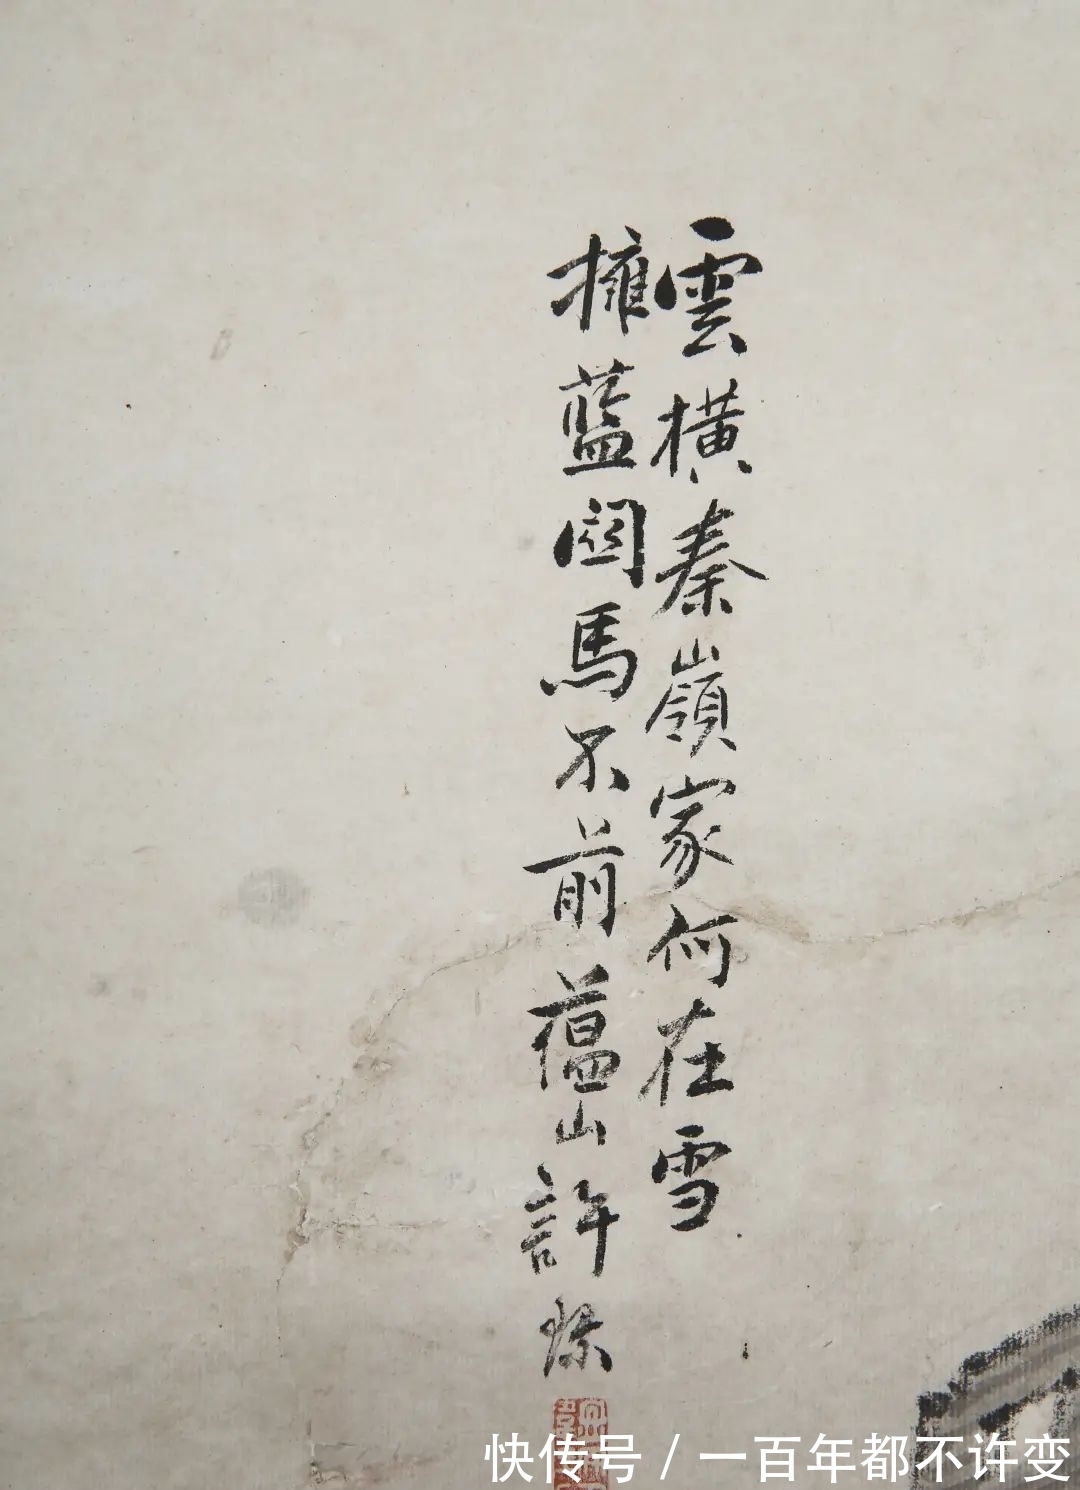 雲橫秦嶺家何在雪
擁藍関馬不前蕴山許
快传号 / 一百年都不许变